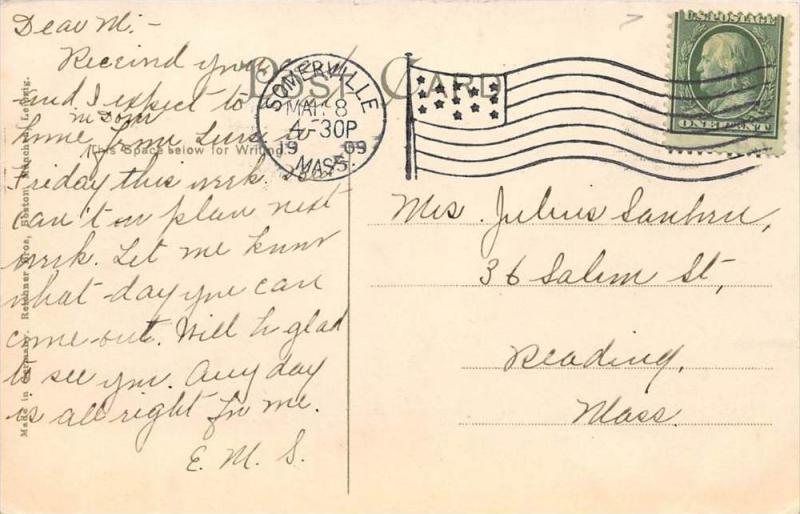 Dear M:-
Received your
and I expect to
in town
home from
Friday this week.
can't plan next
week. Let me know
what day you can
come out. Will be glad
to see you. Any day
is all right for me.
E. M. S.
POST CARD
This Space below for Writing
Made in Germany. Reichner Bros., Boston, Munchen, Leipzig.
SOMERVILLE
MAR 8
4-30P
19 09
MASS.
U.S. POSTAGE
ONE CENT
Mrs. Julius Sanborn,
36 Salem St,
Reading,
Mass.